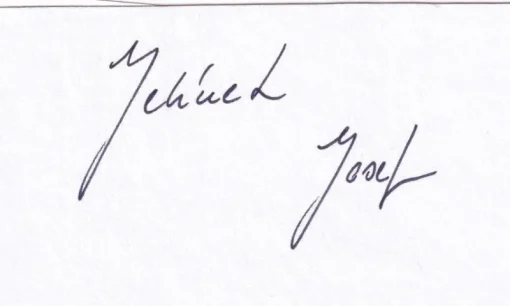 Jelínek
Josef